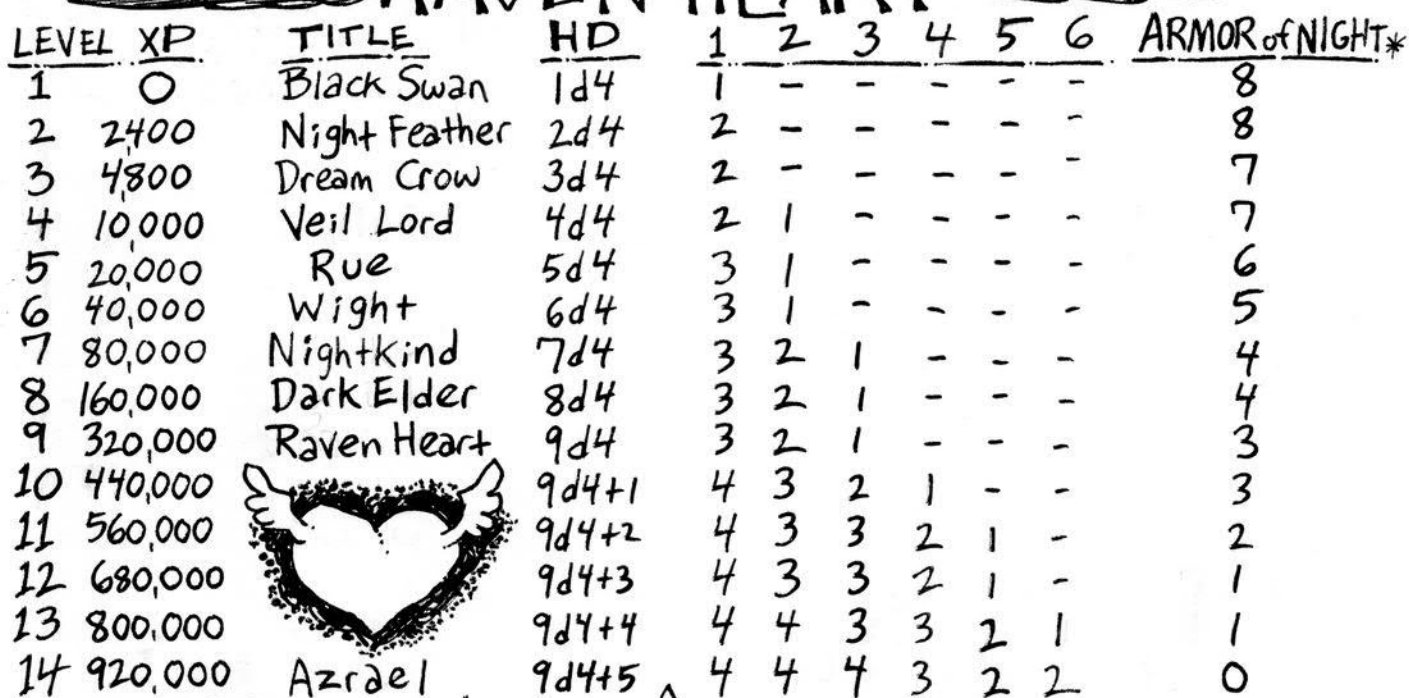 RAVEN HEART
LEVEL XP TITLE HD 1 2 3 4 5 6 ARMOR of NIGHT*
1 0 Black Swan 1d4 1 - - - - - 8
2 2,400 Night Feather 2d4 2 - - - - - 8
3 4,800 Dream Crow 3d4 2 - - - - - 7
4 10,000 Veil Lord 4d4 2 1 - - - - 7
5 20,000 Rue 5d4 3 1 - - - - 6
6 40,000 Wight 6d4 3 1 - - - - 5
7 80,000 Nightkind 7d4 3 2 1 - - - 4
8 160,000 Dark Elder 8d4 3 2 1 - - - 4
9 320,000 Raven Heart 9d4 3 2 1 - - - 3
10 440,000 9d4+1 4 3 2 1 - - 3
11 560,000 9d4+2 4 3 3 2 1 - 2
12 680,000 9d4+3 4 3 3 2 1 - 1
13 800,000 9d4+4 4 4 3 3 2 1 1
14 920,000 Azrael 9d4+5 4 4 4 3 2 2 0